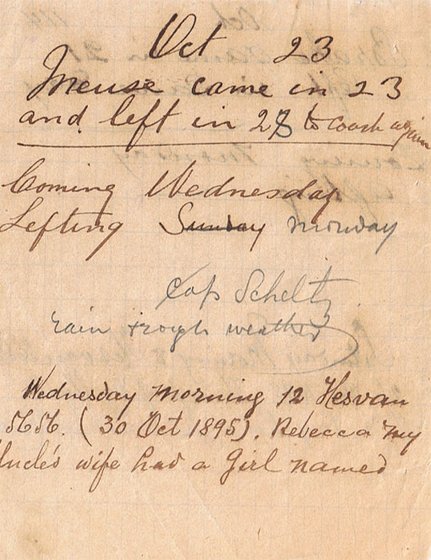 Oct 23
Meuse came in 23
and left in 28 to coash again
Coming Wednesday
Lefting Sunday Monday
Cap Scheltz
rain & rough weather
Wednesday morning 12 Hesvan
5656. (30 Oct 1895). Rebecca my
Uncle's wife had a girl named